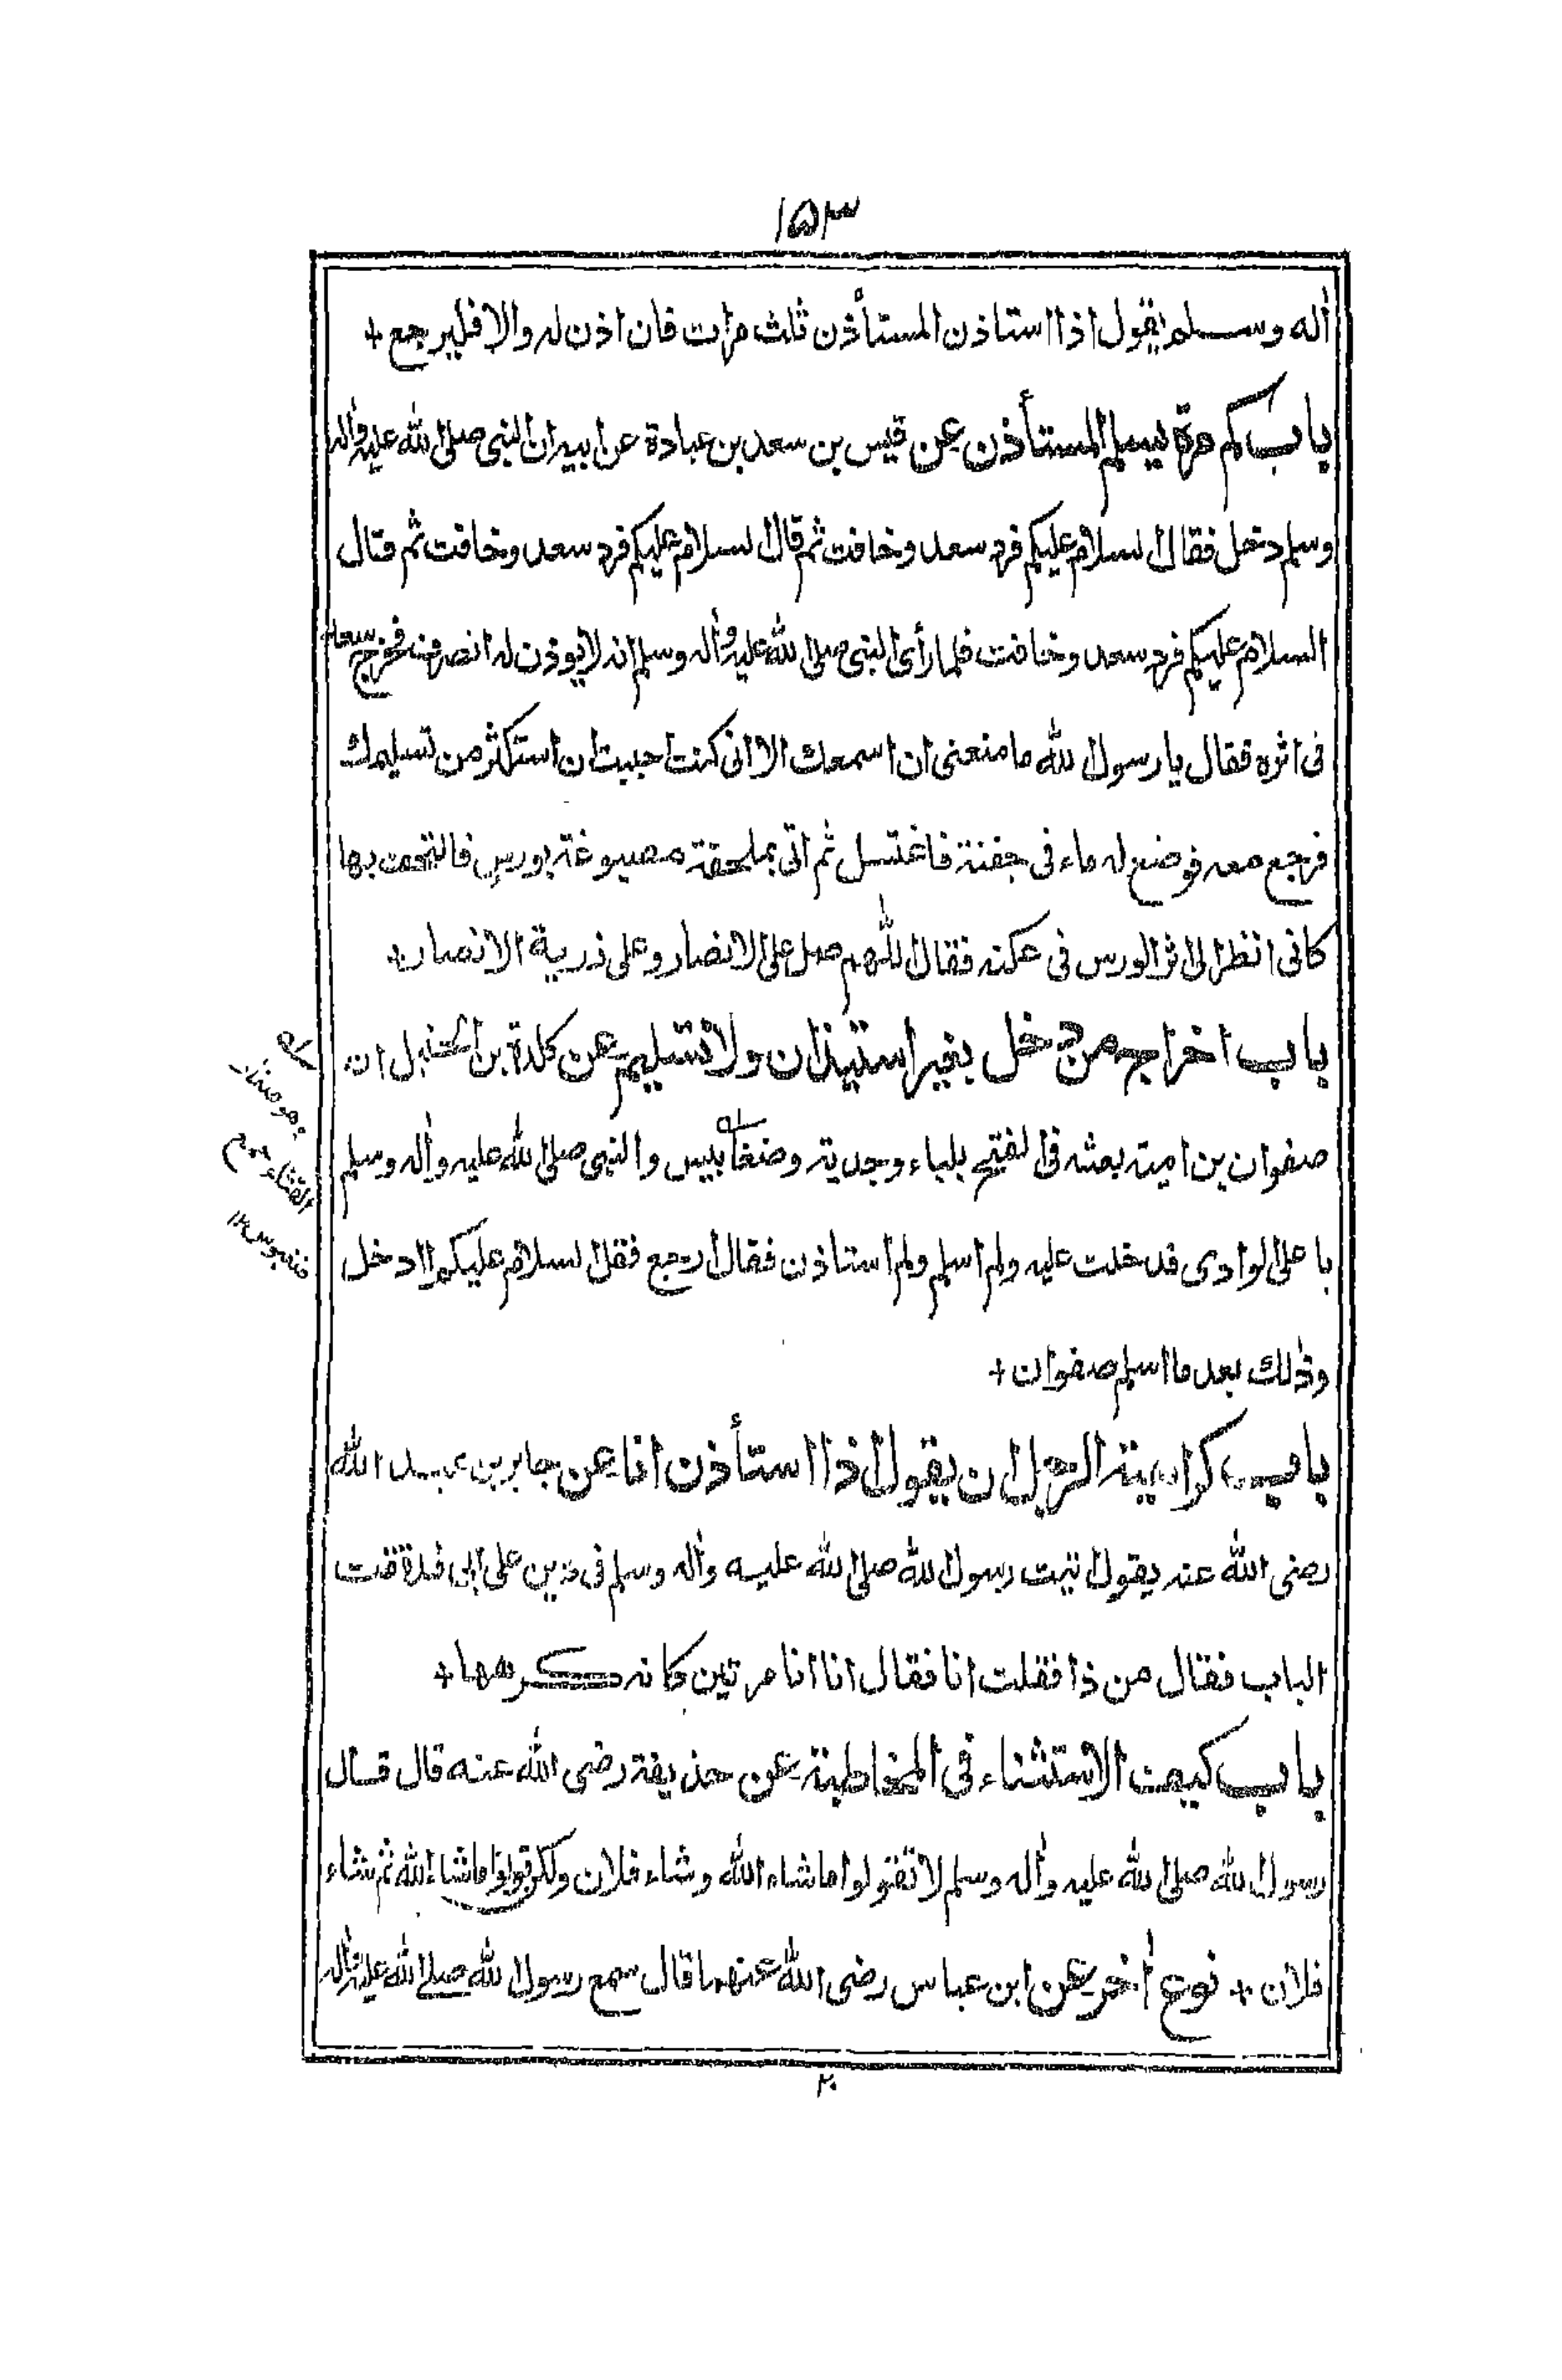 ١٥٣
أله وسلم يقول اذا استاذن المستأذن ثلث مرات فان اذن له والا فليرجع +
باب كم مرة يسلم المستأذن عن قيس بن سعد بن عبادة عن ابيه ان النبى صلى الله عليه وأله
وسلم دخل فقال السلام عليكم فرد سعد وخافت ثم قال السلام عليكم فرد سعد وخافت ثم قال
السلام عليكم فرد سعد وخافت فلما رأى النبى صلى الله عليه وأله وسلم انه لا يوذن له انصرف فخرج سعد
فى اثره فقال يا رسول الله ما منعنى ان اسمعك الا انى كنت احببت ان استكثر من تسليمك
فرجع معه فوضع له ماء فى جفنة فاغتسل ثم اتى بملحفة مصبوغة بورس فالتحف بها
كانى انظر الى اثر الورس فى عكنه فقال اللهم صل على الانصار وعلى ذرية الانصار+
باب اخراج من دخل بغير استيذان ولا تسليم عن كلدة بن الحنبل ان
صفوان بن امية بعثه فى الفتح بلباء وجداية وضغابيس والنبى صلى الله عليه وأله وسلم
باعلى الوادى فدخلت عليه ولم اسلم ولم استاذن فقال ارجع فقل السلام عليكم اادخل
وذلك بعد ما اسلم صفوان +
باب كراهية الرجل ان يقول اذا استأذن انا عن جابر بن عبد الله
رضى الله عنه يقول اتيت رسول الله صلى الله عليه وأله وسلم فى دين على ابى فدققت
الباب فقال من ذا فقلت انا فقال انا انا مرتين كانه كرهها+
باب كيف الاستثناء فى المخاطبة عن حذيفة رضى الله عنه قال قال
رسول الله صلى الله عليه وأله وسلم لا تقولوا ما شاء الله وشاء فلان ولكن قولوا ما شاء الله ثم شاء
فلان + نوع أخر عن ابن عباس رضى الله عنهما قال سمع رسول الله صلى الله عليه وأله
٢٠